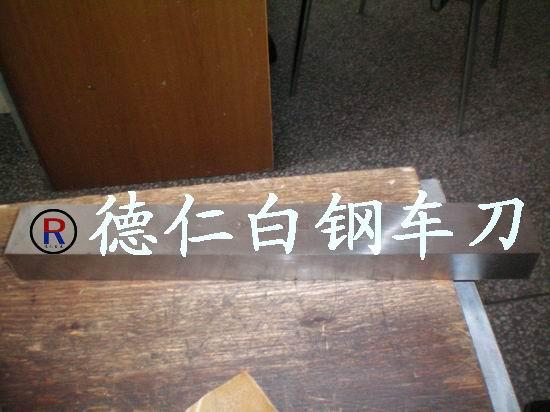 R 德仁白钢车刀